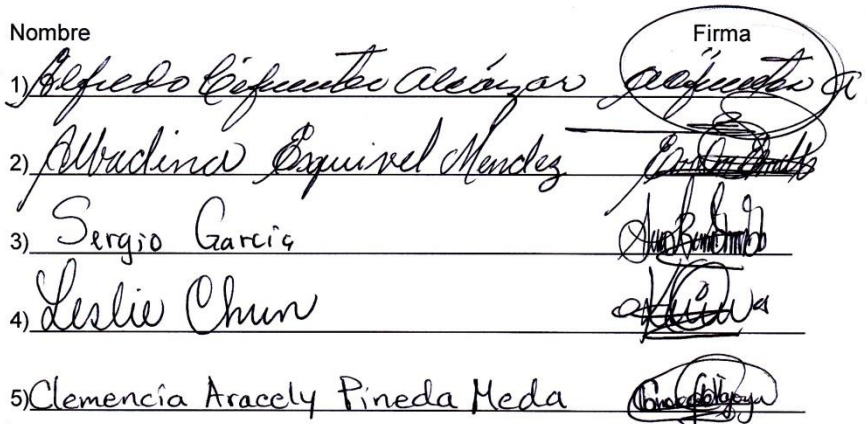 Nombre Firma
1) Alfredo Cifuentes Alcázar
2) Albadina Esquivel Mendez
3) Sergio García
4) Leslie Chun
5) Clemencia Aracely Pineda Meda